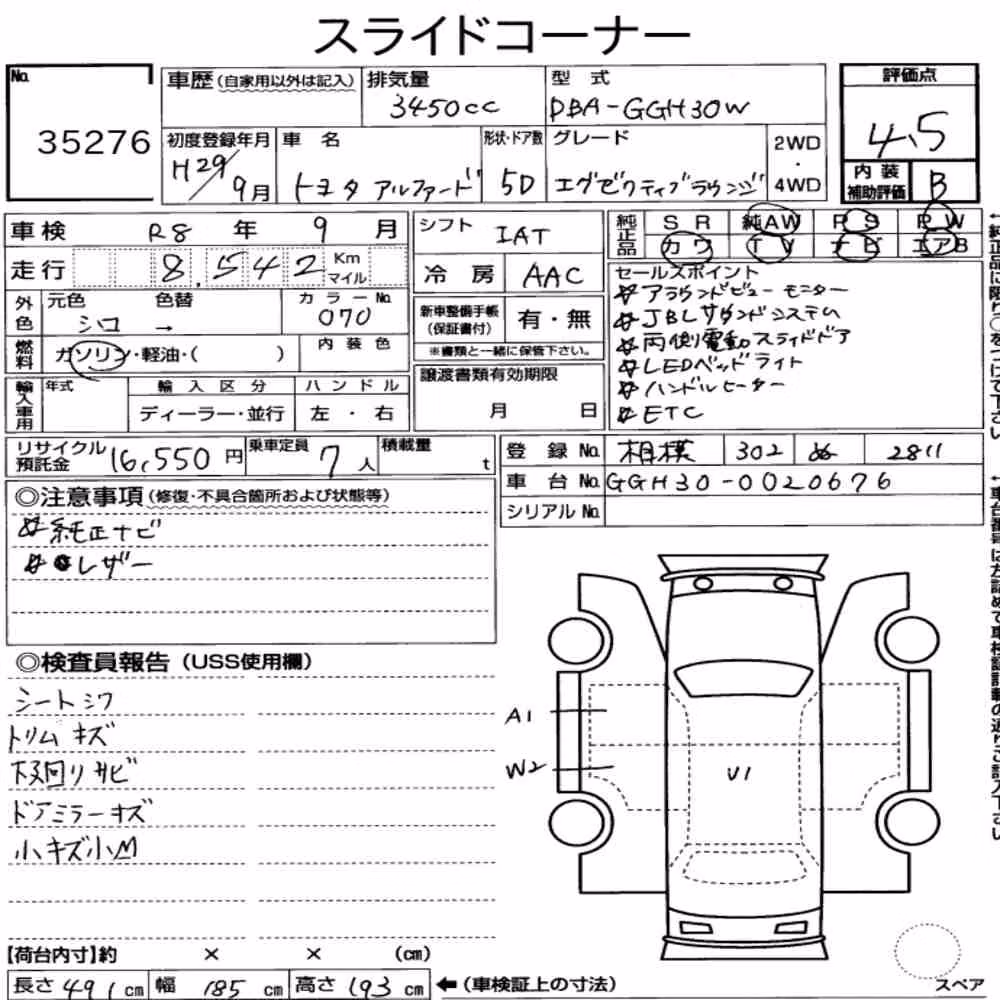 スライドコーナー
No. 35276
車歴 (自家用以外は記入)
排気量 3450cc
型 式 DBA-GGH30W
評価点 4.5
初度登録年月 H29/9月
車 名 トヨタ アルファード
形状・ドア数 5D
グレード エグゼクティブラウンジ
2WD・4WD
内装補助評価 B
車検 R8 年 9 月
シフト IAT
純正品 SR 純AW PS PW
カワ TV ナビ エアB
走行 8,542 Km マイル
冷 房 AAC
セールスポイント
アラウンドビューモニター
JBLサウンドシステム
両側電動スライドドア
LEDヘッドライト
ハンドルヒーター
ETC
外色 元色 シロ 色替 → カラーNo. 070
新車整備手帳(保証書付) 有・無
※書類と一緒に保管下さい。
燃料 ガソリン・軽油・( ) 内装色
輸入車用 年式 輸入区分 ハンドル
ディーラー・並行 左・右
譲渡書類有効期限
月 日
リサイクル預託金 16,550 円
乗車定員 7 人
積載量 t
登 録 No. 相模 302 ぬ 2811
車 台 No. GGH30-0020676
シリアル No.
◎注意事項(修復・不具合箇所および状態等)
純正ナビ
レザー
◎検査員報告(USS使用欄)
シートシワ
トリムキズ
下回りサビ
ドアミラーキズ
小キズ小凹
A1
W2
U1
【荷台内寸】約 × × (cm)
長さ 491 cm 幅 185 cm 高さ 193 cm ←(車検証上の寸法)
スペア